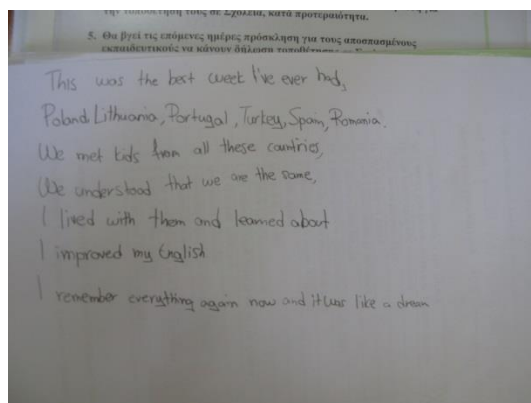 την τοποθέτησή τους σε Σχολεία, κατά προτεραιότητα.
5. Θα βγεί τις επόμενες ημέρες πρόσκληση για τους αποσπασμένους
εκπαιδευτικούς να κάνουν δήλωση τοποθέτησης σε
This was the best week I've ever had,
Poland, Lithuania, Portugal, Turkey, Spain, Romania.
We met kids from all these countries,
We understood that we are the same,
I lived with them and learned about
I improved my English
I remember everything again now and it was like a dream